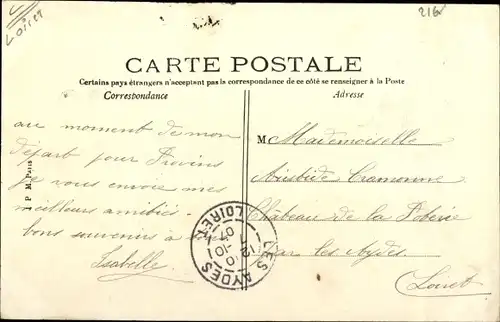 Loiret
2161
CARTE POSTALE
Certains pays étrangers n'acceptant pas la correspondance de ce côté se renseigner à la Poste
Correspondance
Adresse
au moment de mon
départ pour Provins
je vous envoie mes
meilleurs amitiés
bons souvenirs à
Isabelle
M Mademoiselle
Aristide Cramonne
Château de la Poterie
par les Aydes
Loiret
LES AYDES
LOIRET
P. M. Paris